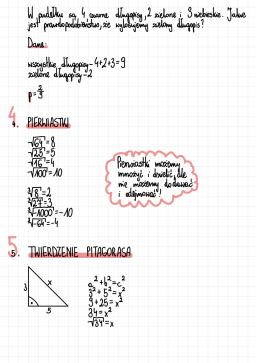 W pudełku są 4 czarne długopisy, 2 zielone i 3 niebieskie. Jakie
jest prawdopodobieństwo, że wylosujemy zielony długopis?
Dane:
wszystkie długopisy - 4+2+3=9
zielone długopisy - 2
p=2/9
4
4. PIERWIASTKI
√64=8
√25=5
√16=4
√100=10
∛8=2
∛27=3
∛-1000=-10
∛-64=-4
Pierwiastki możemy
mnożyć i dzielić, ale
nie możemy dodawać
i odejmować!
5
5. TWIERDZENIE PITAGORASA
3
x
5
a²+b²=c²
3²+5²=x²
9+25=x²
34=x²
√34=x